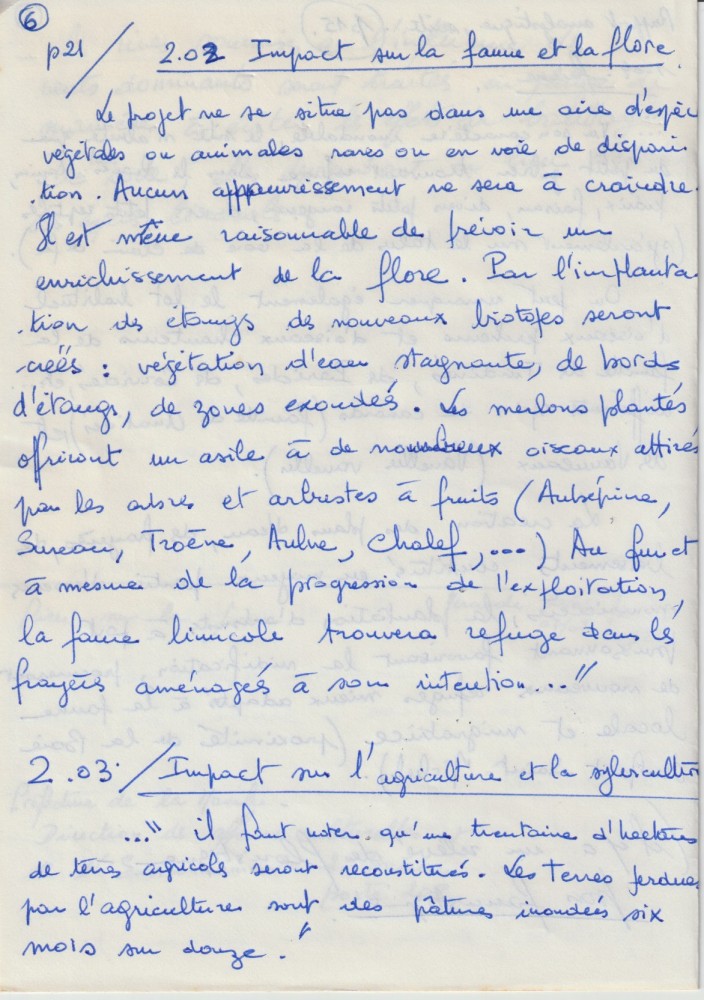 6
p21/ 2.02 Impact sur la faune et la flore.
Le projet ne se situe pas dans une aire d'espèc
végétales ou animales rares ou en voie de dispari-
-tion. Aucun appauvrissement ne sera à craindre.
Il est même raisonnable de prévoir un
enrichissement de la flore. Par l'implanta
-tion des étangs de nouveaux biotopes seront
créés : végétation d'eau stagnante, de bords
d'étangs, de zones exondées. Les merlons plantés
offriront un asile à de nombreux oiseaux attirés
par les arbres et arbustes à fruits (Aubépine,
Sureau, Troène, Aulne, Chalef,...) Au fur et
à mesure de la progression de l'exploitation,
la faune limicole trouvera refuge dans les
frayères aménagées à son intention..."
2.03 / Impact sur l'agriculture et la sylviculture
..." il faut noter qu'une trentaine d'hectares
de terres agricoles seront reconstitués. Les Terres perdues
par l'agriculture sont des pâtures inondées six
mois sur douze."